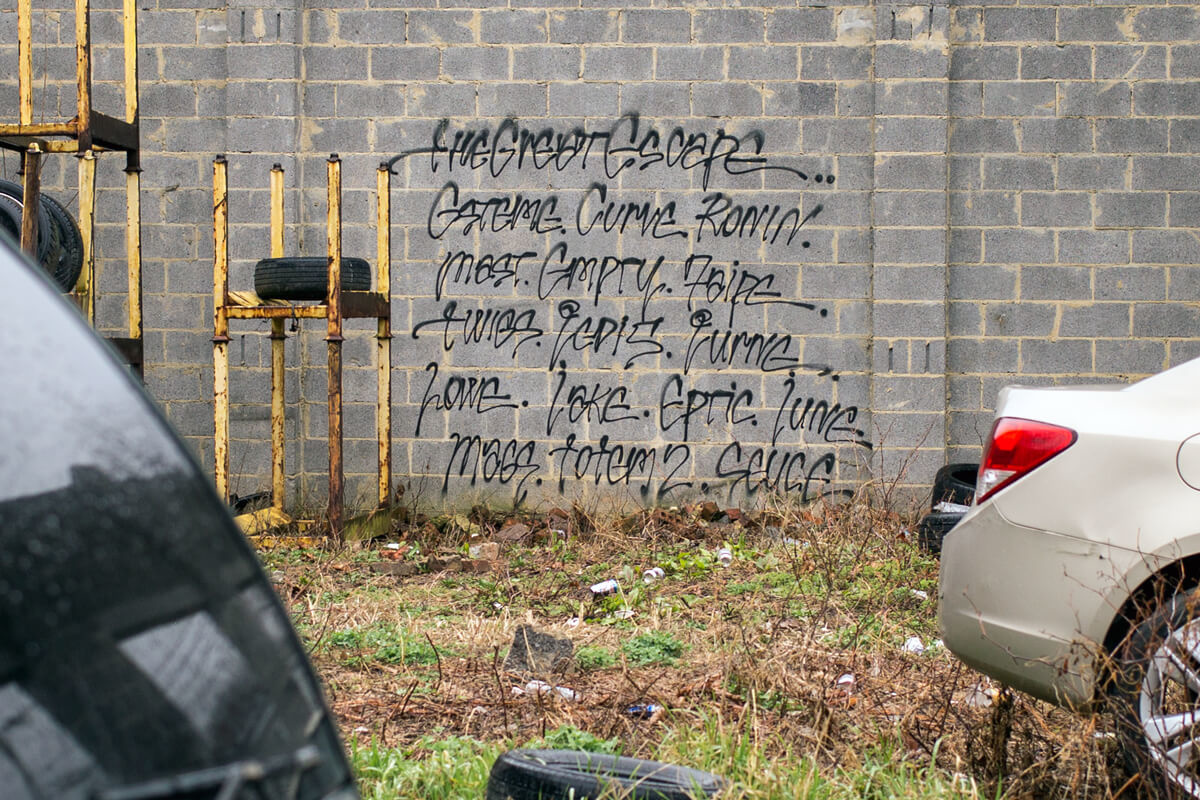 the Great Escape..
Gsteme. Curve. Ronin.
Mast. Empty. 7aipe.
twigs. jedis. jurne.
Lowe. Jake. Eptic. June.
Mags. totem2. Sauce